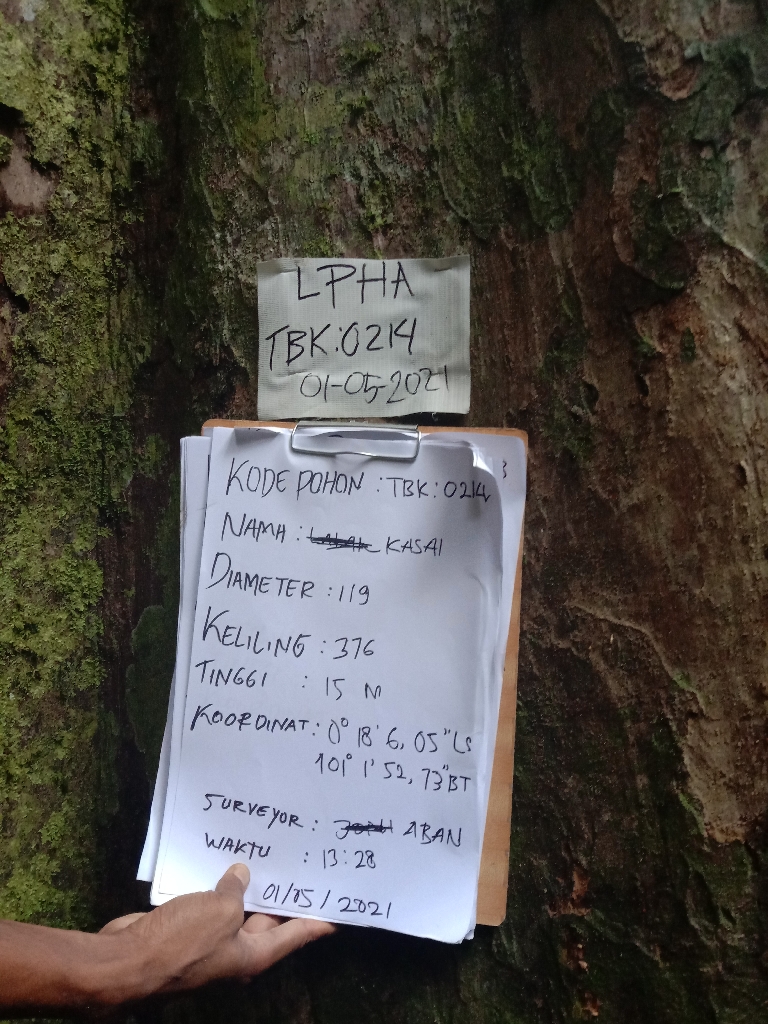 LPHA
TBK:0214
01-05-2021
KODE POHON : TBK:0214
NAMA : KASAI
DIAMETER : 119
KELILING : 376
TINGGI : 15 M
KOORDINAT : 0° 18' 6,05" LS
101° 1' 52,73" BT
SURVEYOR : ABAN
WAKTU : 13:28
01/05/2021